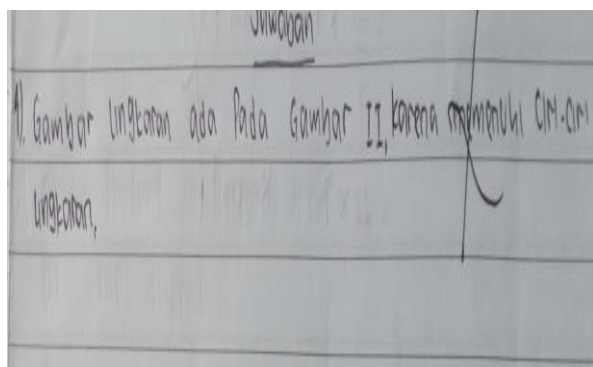 Jawaban
1). Gambar lingkaran ada Pada Gambar II, karena memenuhi Ciri-ciri
lingkaran,